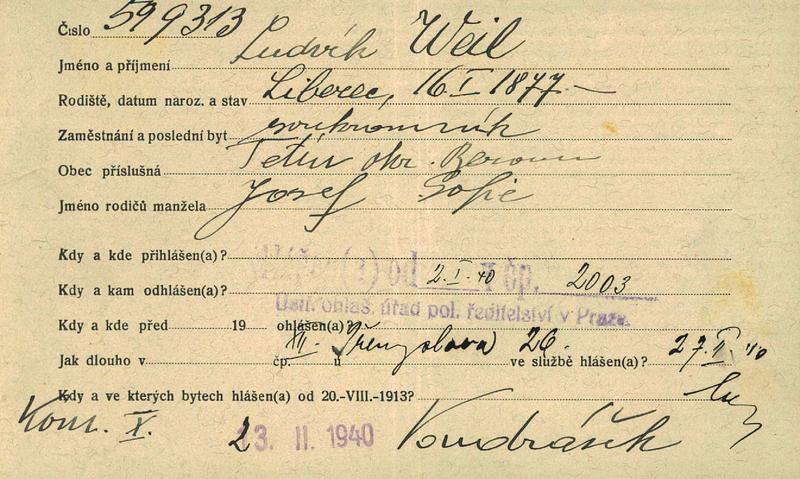 Číslo 599313
Jméno a příjmení Ludvík Weil
Rodiště, datum naroz. a stav Liberec, 16. I. 1877. —
Zaměstnání a poslední byt soukromník
Obec příslušná Tetín okr. Beroun
Jméno rodičů manžela Josef Sofie
Kdy a kde přihlášen(a)?
(a) od V čp.
Kdy a kam odhlášen(a)? 2. I. 40 2003
Ústř. ohlaš. úřad pol. ředitelství v Praze.
Kdy a kde před 19 ohlášen(a)?
Jak dlouho v čp. u XII. Přemyslova 26. ve službě hlášen(a)? 27. II. 40
Kdy a ve kterých bytech hlášen(a) od 20.-VIII.-1913?
Kom. X. 23. II. 1940 Vondrášek